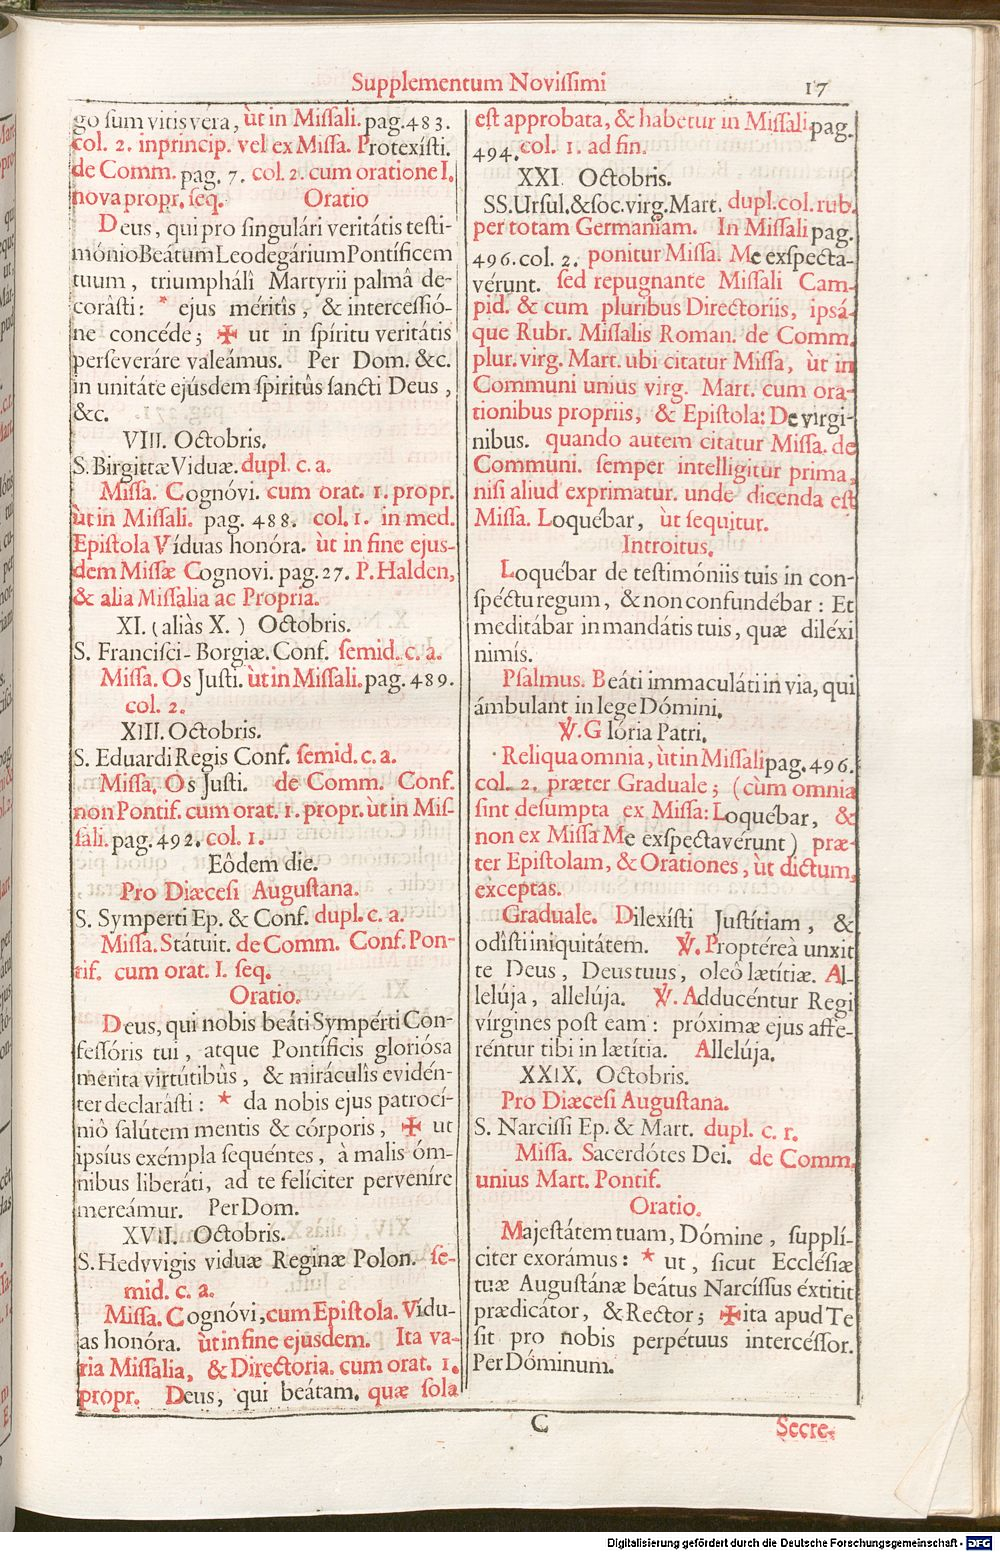 Supplementum Noviſſimi 17
go ſum vitis véra, ùt in Miſſali. pag. 483.
col. 2. in princip. vel ex Miſſa. Protexíſti.
de Comm. pag. 7. col. 2. cum oratione I.
nova propr. ſeq. Oratio
Deus, qui pro ſingulári veritátis teſti-
mónio Beátum Leodegárium Pontíficem
tuum, triumphálî Martyrii palmâ de-
corâſti: * ejus méritis, & interceſſió-
ne concéde; ✠ ut in ſpíritu veritátis
perſeveráre valeámus. Per Dom. &c.
in unitáte ejúsdem ſpiritûs ſancti Deus,
&c.
VIII. Octobris.
S. Birgittæ Viduæ. dupl. c. a.
Miſſa. Cognóvi. cum orat. 1. propr.
ùt in Miſſali. pag. 488. col. 1. in med.
Epiſtola Víduas honóra. ùt in fine ejus-
dem Miſſæ Cognovi. pag. 27. P. Halden,
& alia Miſſalia ac Propria.
XI. (aliàs X.) Octobris.
S. Franciſci-Borgiæ. Conf. ſemid. c. a.
Miſſa. Os Juſti. ùt in Miſſali. pag. 489.
col. 2.
XIII. Octobris.
S. Eduardi Regis Conf. ſemid. c. a.
Miſſa. Os Juſti. de Comm. Conf.
non Pontif. cum orat. 1. propr. ùt in Miſ-
ſali. pag. 492. col. 1.
Eôdem die.
Pro Diæceſi Auguſtana.
S. Symperti Ep. & Conf. dupl. c. a.
Miſſa. Státuit. de Comm. Conf. Pon-
tif. cum orat. I. ſeq.
Oratio.
Deus, qui nobis beáti Symperti Con-
feſſóris tui, atque Pontíficis gloriósa
mérita virtútibûs, & miráculîs evidén-
ter declarâſti: * da nobis ejus patrocí-
niô ſalútem mentis & córporis, ✠ ut
ipsíus exémpla ſequéntes, à malis óm-
nibus liberáti, ad te feliciter perveníre
mereámur. Per Dom.
XVII. Octobris.
S. Hedvvigis viduæ Reginæ Polon. ſe-
mid. c. a.
Miſſa. Cognóvi, cum Epiſtola. Vídu-
as honóra. ùt in fine ejusdem. Ita va-
ria Miſſalia, & Directoria. cum orat. 1.
propr. Deus, qui beátam. quæ ſola
eſt approbata, & habetur in Miſſali. pag.
494. col. 1. ad fin.
XXI. Octobris.
SS. Urſul. & ſoc. virg. Mart. dupl. col. rub.
per totam Germaniam. In Miſſali pag.
496. col. 2. ponitur Miſſa. Me exſpecta-
vérunt. ſed repugnante Miſſali Cam-
pid. & cum pluribus Directoriis, ipsâ-
que Rubr. Miſſalis Roman. de Comm.
plur. virg. Mart. ubi citatur Miſſa, ùt in
Communi unius virg. Mart. cum ora-
tionibus propriis, & Epiſtola: De virgi-
nibus. quando autem citatur Miſſa. de
Communi. ſemper intelligitur prima,
niſi aliud exprimatur. unde dicenda eſt
Miſſa. Loquébar, ùt ſequitur.
Introitus.
Loquébar de teſtimóniis tuis in con-
ſpéctu regum, & non confundébar: Et
meditábar in mandátis tuis, quæ diléxi
nimís.
Pſalmus. Beáti immaculáti in via, qui
ámbulant in lege Dómini.
℣. Glória Patri.
Reliqua omnia, ùt in Miſſali pag. 496.
col. 2. præter Graduale; (cùm omnia
ſint deſumpta ex Miſſa: Loquébar, &
non ex Miſſa Me exſpectavérunt) præ-
ter Epiſtolam, & Orationes, ùt dictum,
exceptas.
Graduale. Dilexíſti Juſtítiam, &
odîſti iniquitátem. ℣. Proptéreà unxit
te Deus, Deus tuus, oleô lætítiæ. Al-
lelúja, allelúja. ℣. Adducéntur Regi
vírgines poſt eam: próximæ ejus affe-
réntur tibi in lætítia. Allelúja.
XXIX. Octobris.
Pro Diæceſi Auguſtana.
S. Narciſſi Ep. & Mart. dupl. c. r.
Miſſa. Sacerdótes Dei. de Comm.
unius Mart. Pontif.
Oratio.
Majeſtátem tuam, Dómine, ſupplí-
citer exorámus: * ut, ſicut Eccléſiæ
tuæ Auguſtánæ beátus Narcíſſus éxtitit
prædicátor, & Rector; ✠ ita apud Te
ſit pro nobis perpétuus intercéſſor.
Per Dóminum.
C Secre-
Digitalisierung gefördert durch die Deutsche Forschungsgemeinschaft - DFG